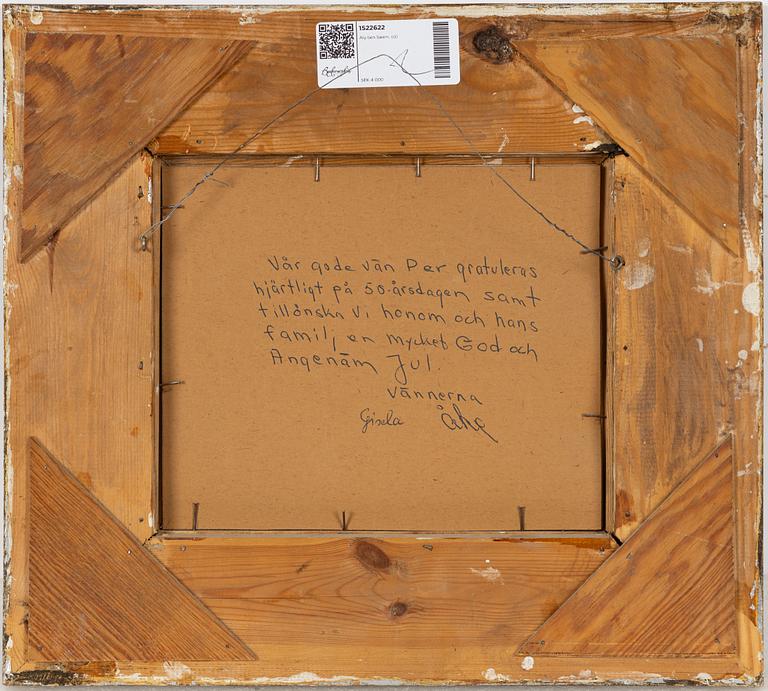 1522622
SEK 4 000
Vår gode vän Per gratuleras
hjärtligt på 50-årsdagen samt
tillönska vi honom och hans
familj en mycket God och
Angenäm Jul.
Vännerna
Gisela Åke